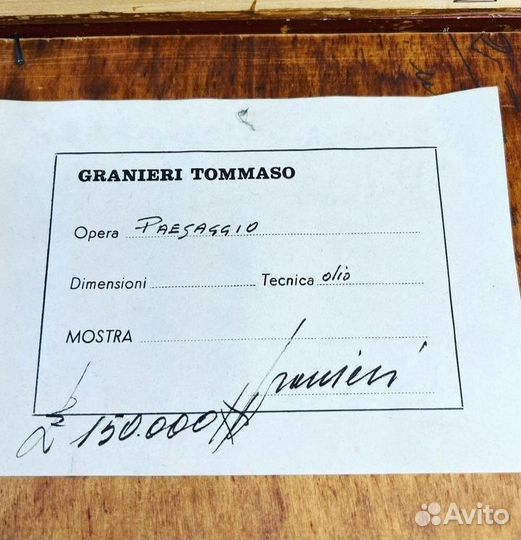 GRANIERI TOMMASO
Opera PAESAGGIO
Dimensioni Tecnica olio
MOSTRA
Granieri
£ 150.000
Avito